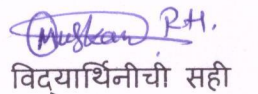 Muskan R.H.
विद्यार्थिनीची सही